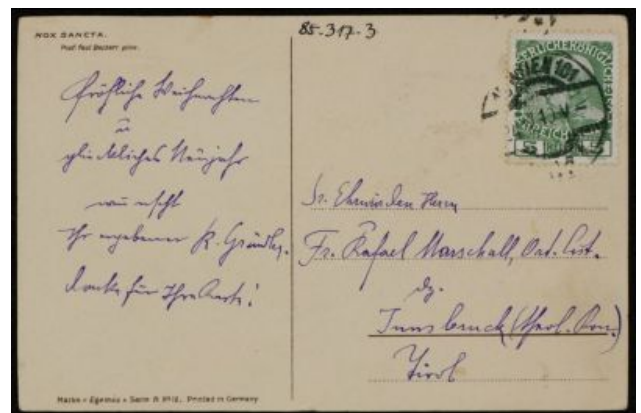 NOX SANCTA.
Prof. Paul Beckert pinx.
85-317-3
WIEN 101
fröhliche Weihnachten
u
glückliches Neujahr
wünscht
Ihr ergebener R. Gründler.
Danke für Ihre Karte!
Sr. Ehrwürden Herrn
Fr. Rafael Marschall, Ord. Cist.
dz.
Innsbruck (theol. Kon.)
Tirol
Marke « Egemes » Serie A Nº 12. Printed in Germany